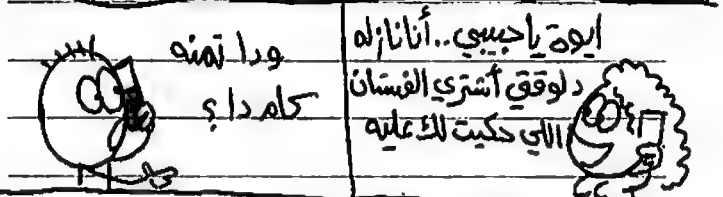 ايوة يا حبيبي.. أنا نازله
دلوقتي أشتري الفستان
اللي حكيت لك عليه
ودا تمنه
كام دا؟